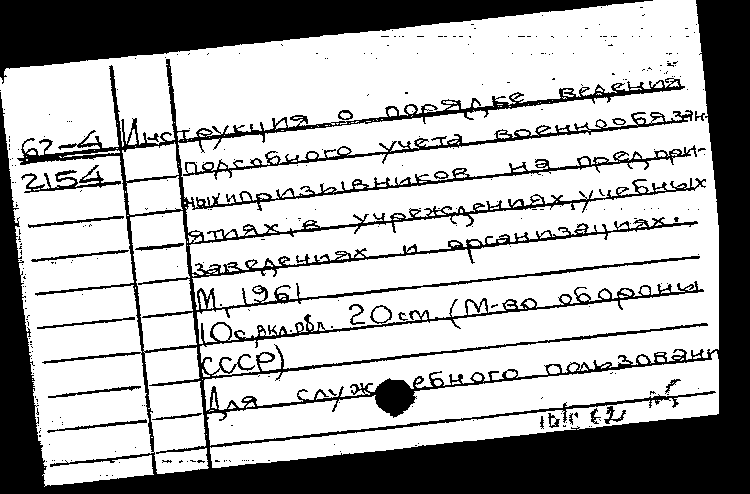 62-4 Инструкция о порядке ведения
2154 подсобного учета военнообязан-
ных и призывников на предпри-
ятиях, в учреждениях, учебных
заведениях и организациях.
М, 1961
10с, вкл. обл. 20 см. (М-во обороны
СССР)
Для служебного пользовани
62